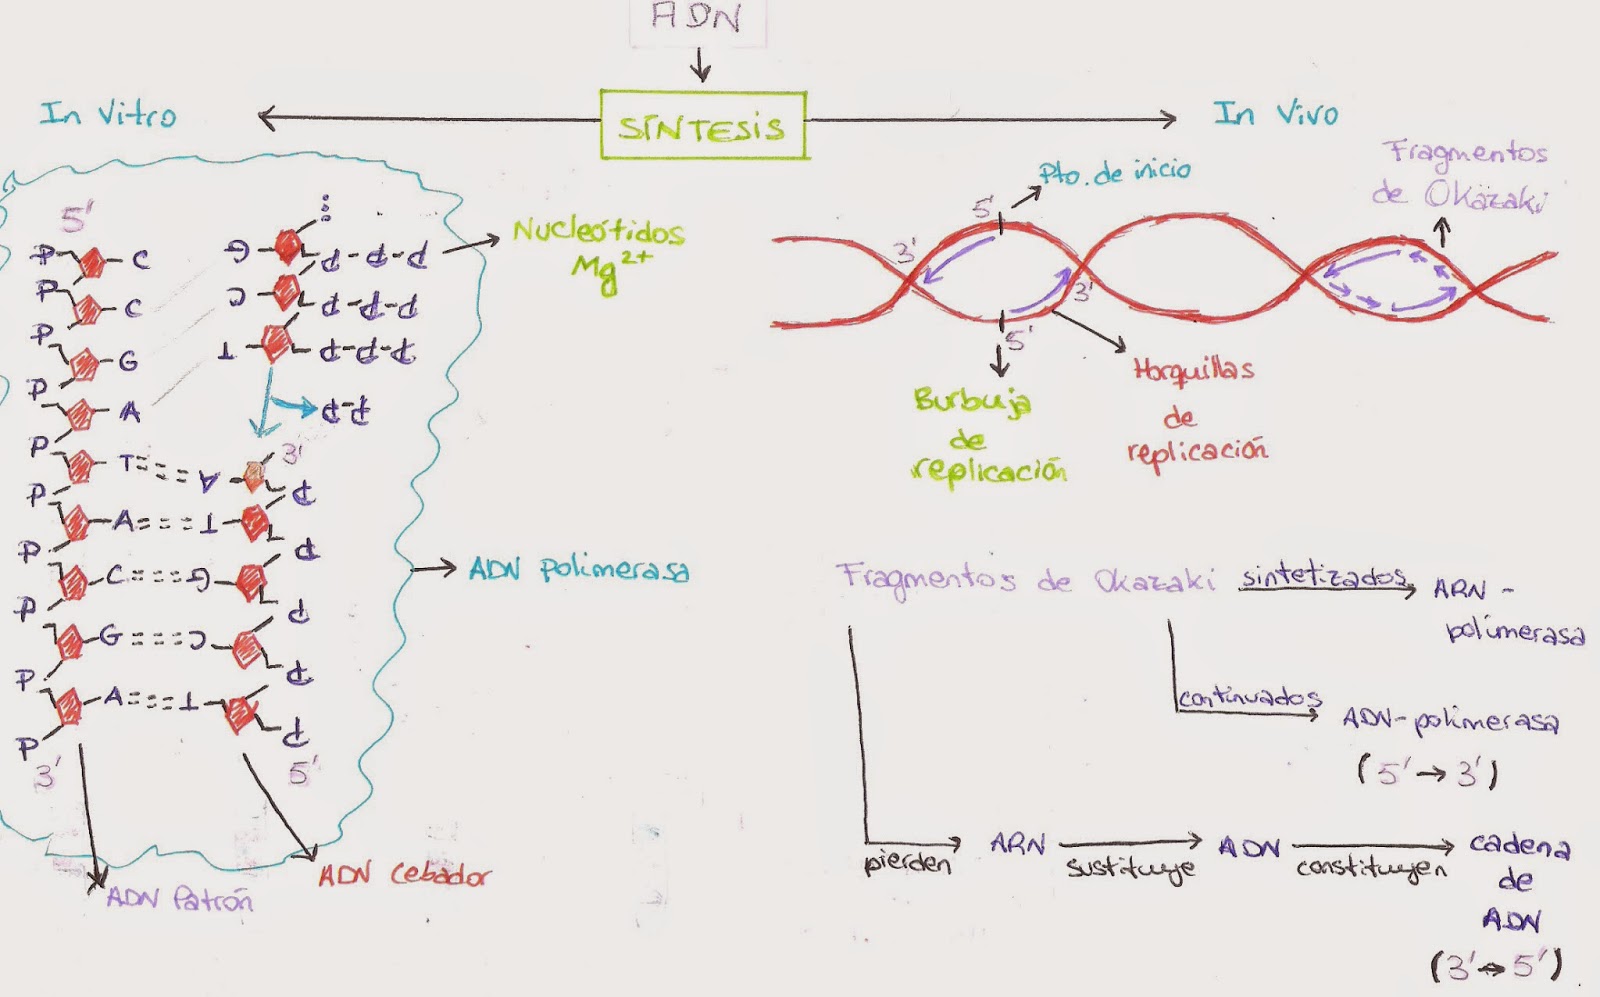 ADN
SÍNTESIS
In Vitro
In Vivo
5'
P C
P C
P G
P A
P T A
P A T
P C G
P G C
P A T
P
3'
G P-P-P
C P-P-P
T P-P-P
P-P
3'
P
P
P
P
P
5'
Nucleótidos
Mg2+
ADN polimerasa
ADN Patrón
ADN Cebador
Pto. de inicio
Fragmentos
de Okazaki
5'
3'
3'
5'
Burbuja
de
replicación
Horquillas
de
replicación
Fragmentos de Okazaki sintetizados ARN-
polimerasa
continuados
ADN-polimerasa
(5'→3')
pierden ARN sustituye ADN constituyen cadena
de
ADN
(3'→5')